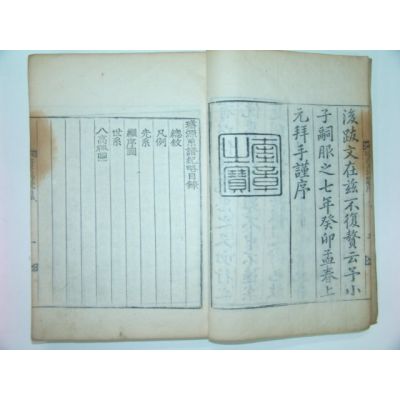 後跋文在玆不復贅云予小
子嗣服之七年癸卯孟春上
元拜手謹序
奎章
之寶
璿源系譜紀略目錄
總敘
凡例
先系
繼序圖
世系
八高祖圖